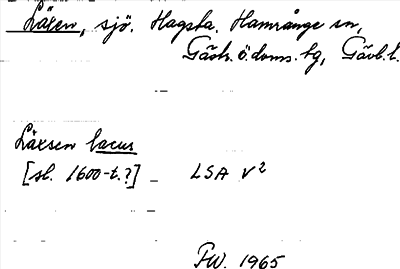 Läxen, sjö. Hagsta. Hamrånge sn,
Gästr. ö. doms. hg, Gävl. l.
Läxsen lacus
[sl. 1600-t.?] – LSA V²
FW. 1965